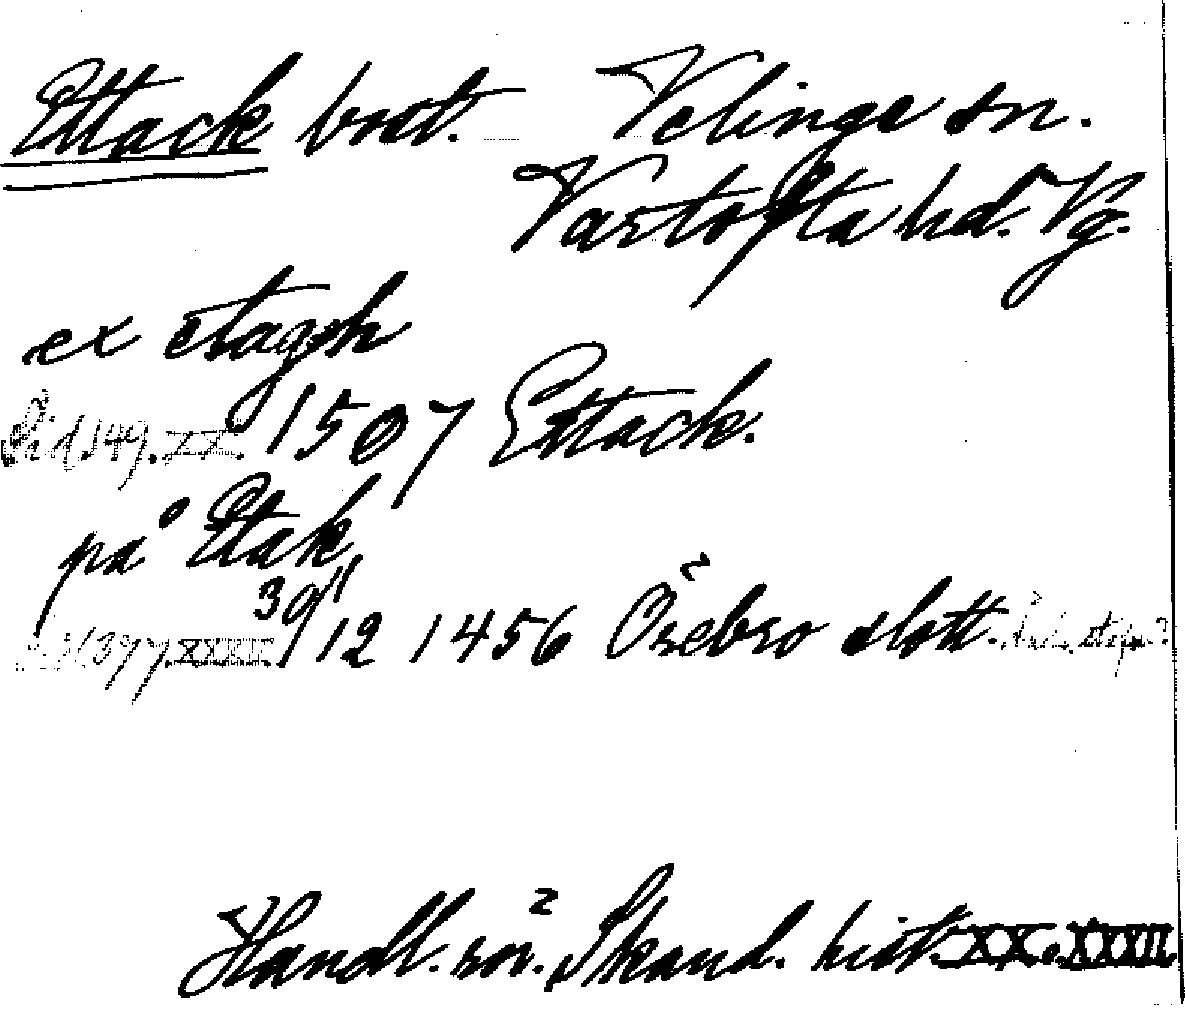 Ettack brot. Velinge sn.
Vartofta hd. Vg.
ex etagh
Sid 149. XX. 1507 Ettack.
på Etak
Sid 377. XXXIX 30/12 1456 Örebro slott.
Handl. rör. Skand. hist. XX. XXXIX